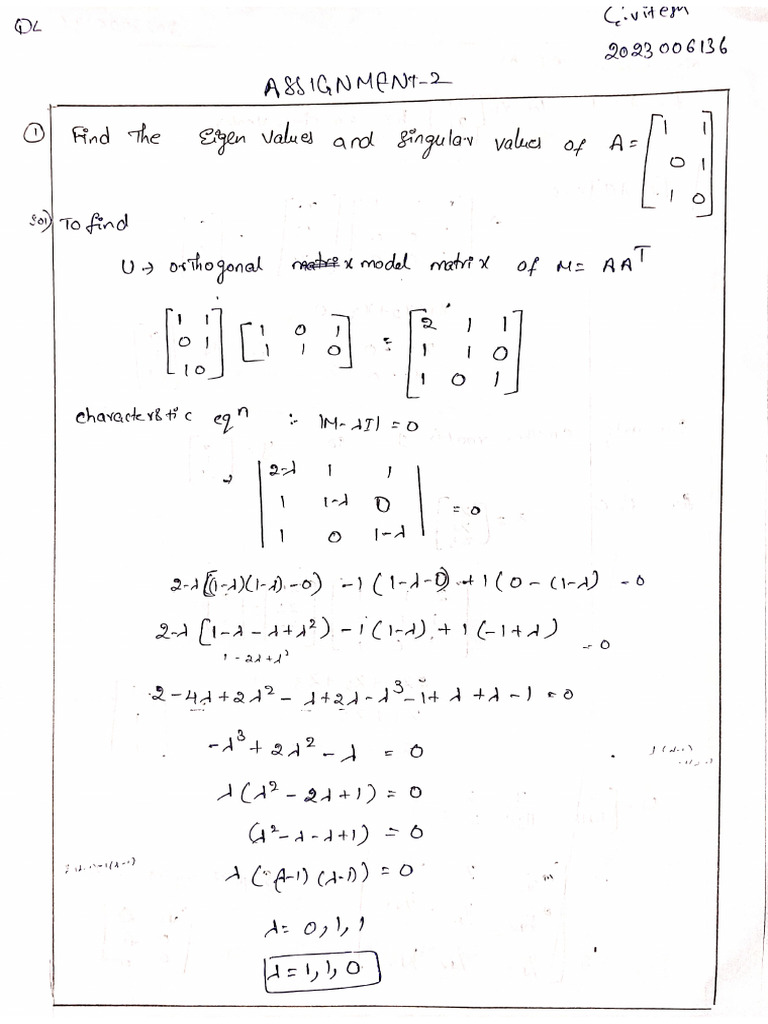 DL
2023006136
ASSIGNMENT-2
① Find The Eigen values and singular values of A = [1 1
0 1
1 0]
Sol) To find
U → orthogonal matrix model matrix of M = AAᵀ
[1 1
0 1
1 0] [1 0 1
1 1 0] = [2 1 1
1 1 0
1 0 1]
characterstic eqn :- |M-λI| = 0
→ |2-λ 1 1
1 1-λ 0
1 0 1-λ| = 0
2-λ[(1-λ)(1-λ)-0) -1(1-λ-0) +1(0-(1-λ) = 0
2-λ[1-λ-λ+λ²) -1(1-λ) +1(-1+λ) = 0
1-2λ+λ²
2-4λ+2λ²-λ+2λ-λ³-1+λ+λ-1 = 0
-λ³+2λ²-λ = 0
λ(λ²-2λ+1) = 0
(λ²-λ-λ+1) = 0
λ((λ-1)(λ-1)) = 0
λ = 0,1,1
λ = 1,1,0